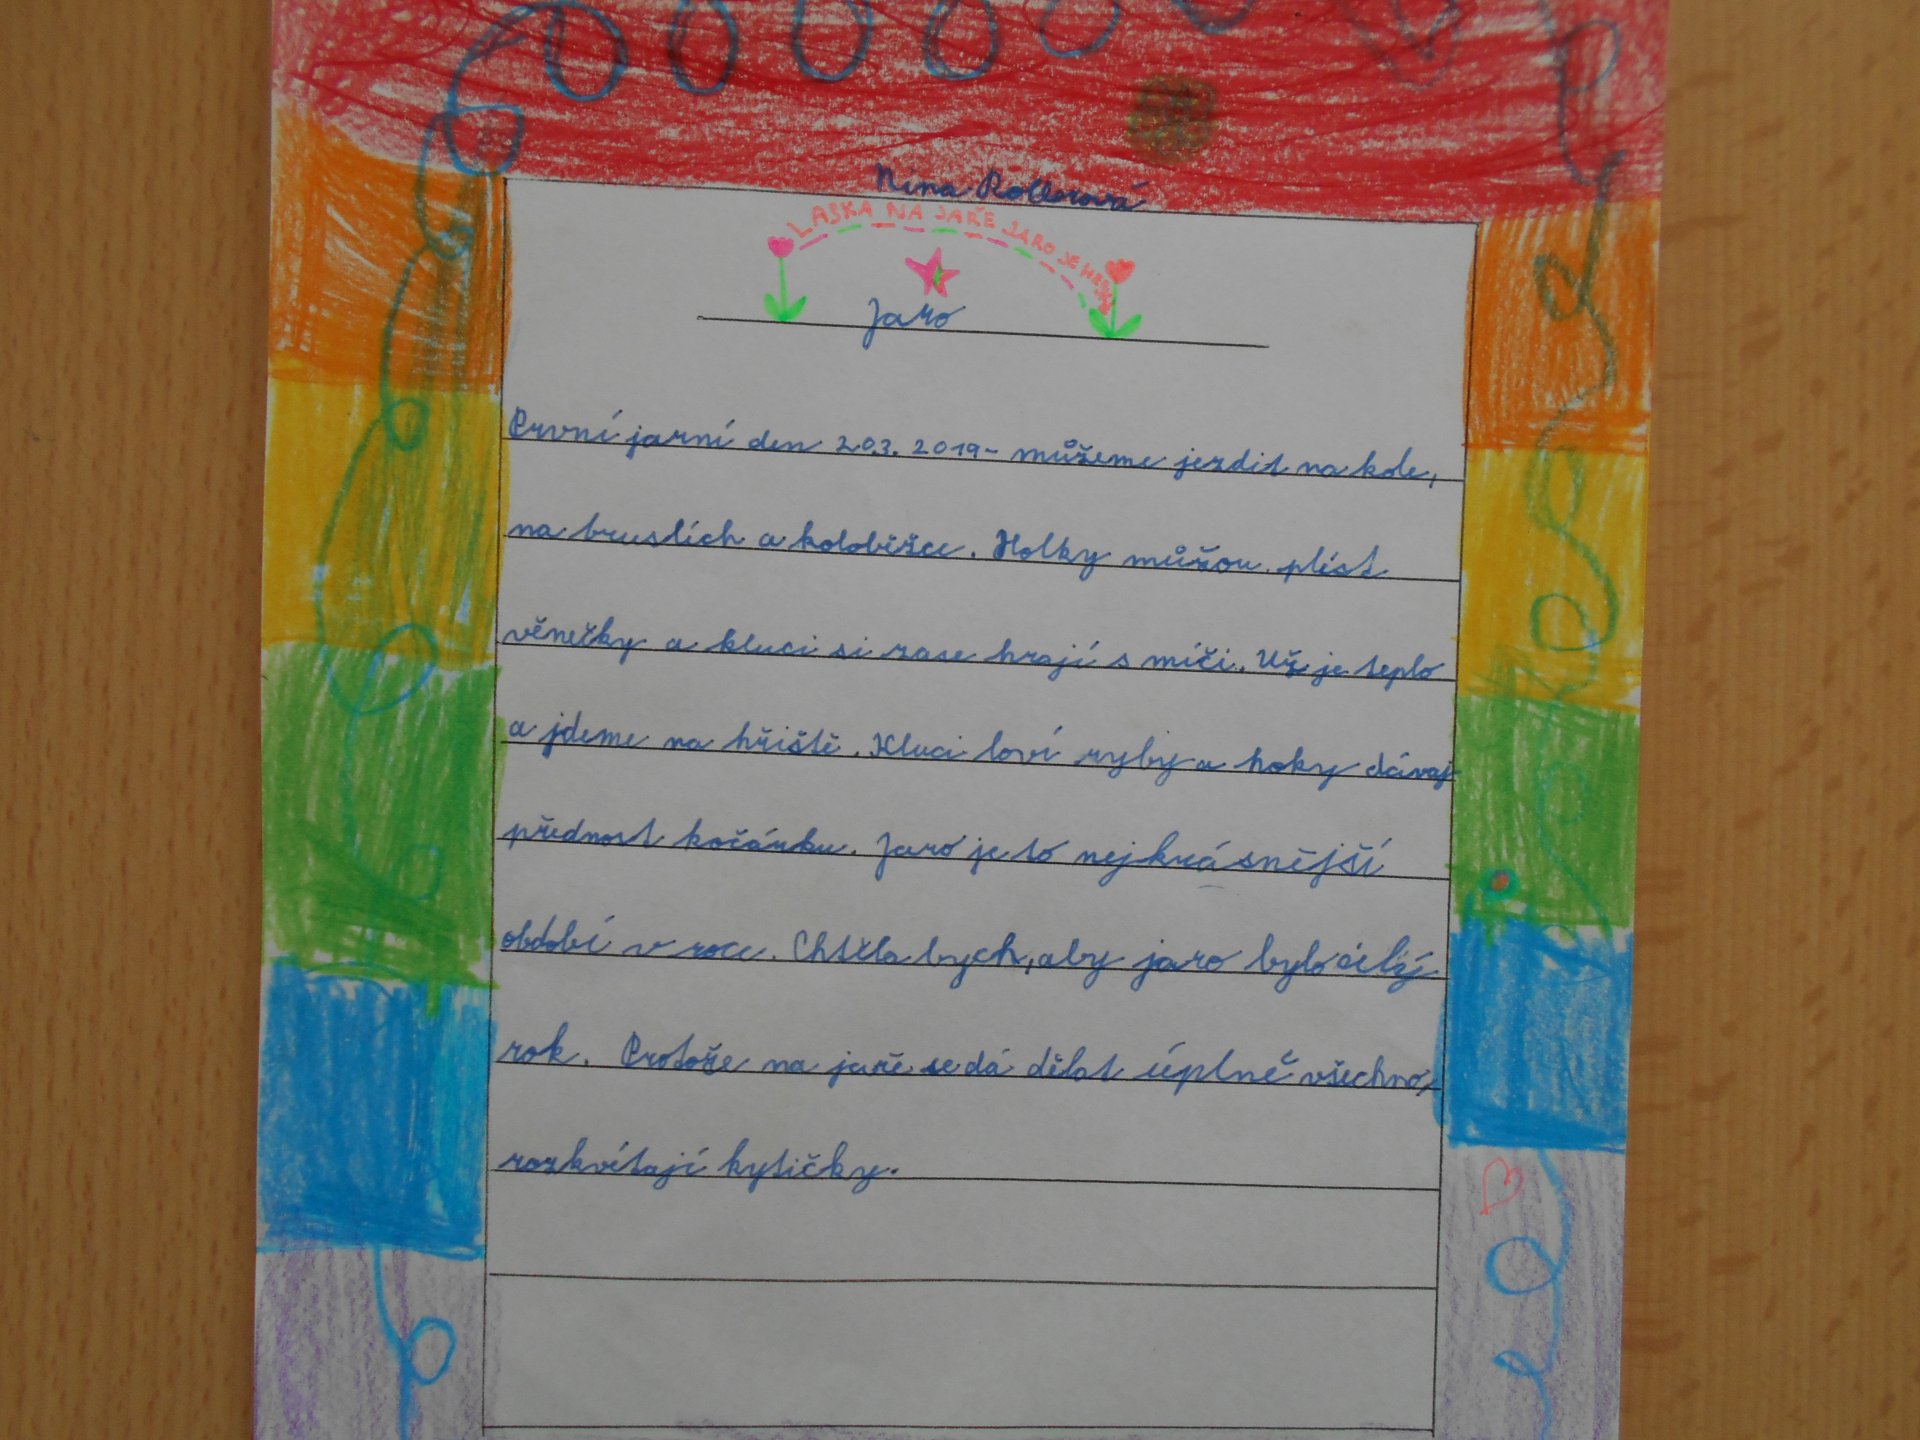 Nina
LÁSKA NA JAŘE JARO JE
Jaro
První jarní den 20.3. 2019- můžeme jezdit na kole,
na bruslích a koloběžce. Holky můžou plést
věnečky a kluci si zase hrají s míči. Už je teplo
a jdeme na hřiště. Kluci loví ryby a hoky dávaj
přednost kočárku. Jaro je to nejkrásnější
období v roce. Chtěla bych, aby jaro bylo cilý
rok. Protože na jaře se dá dělat úplně všechno,
rozkvítají kytičky.